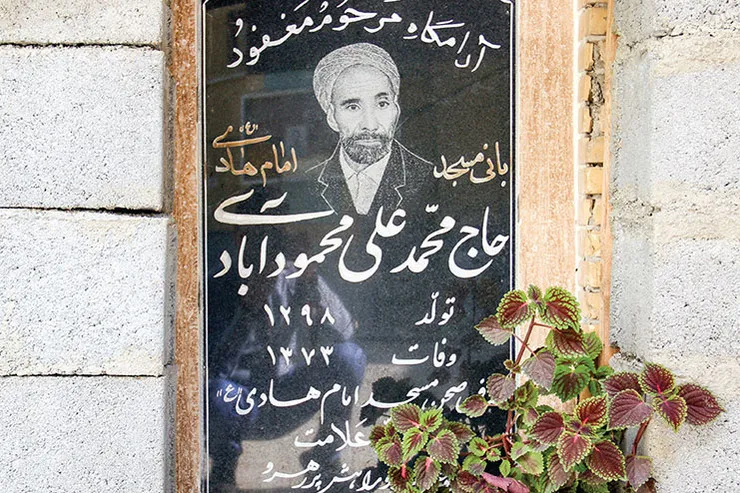 آرامگاه مرحوم مغفور
بانی مسجد امام هادی "ع"
حاج محمّد علی محمودآبادی
تولّد ۱۲۹۸
وفات ۱۳۷۳
صحن مسجد امام هادی "ع"
علامت
راهش پر رهرو